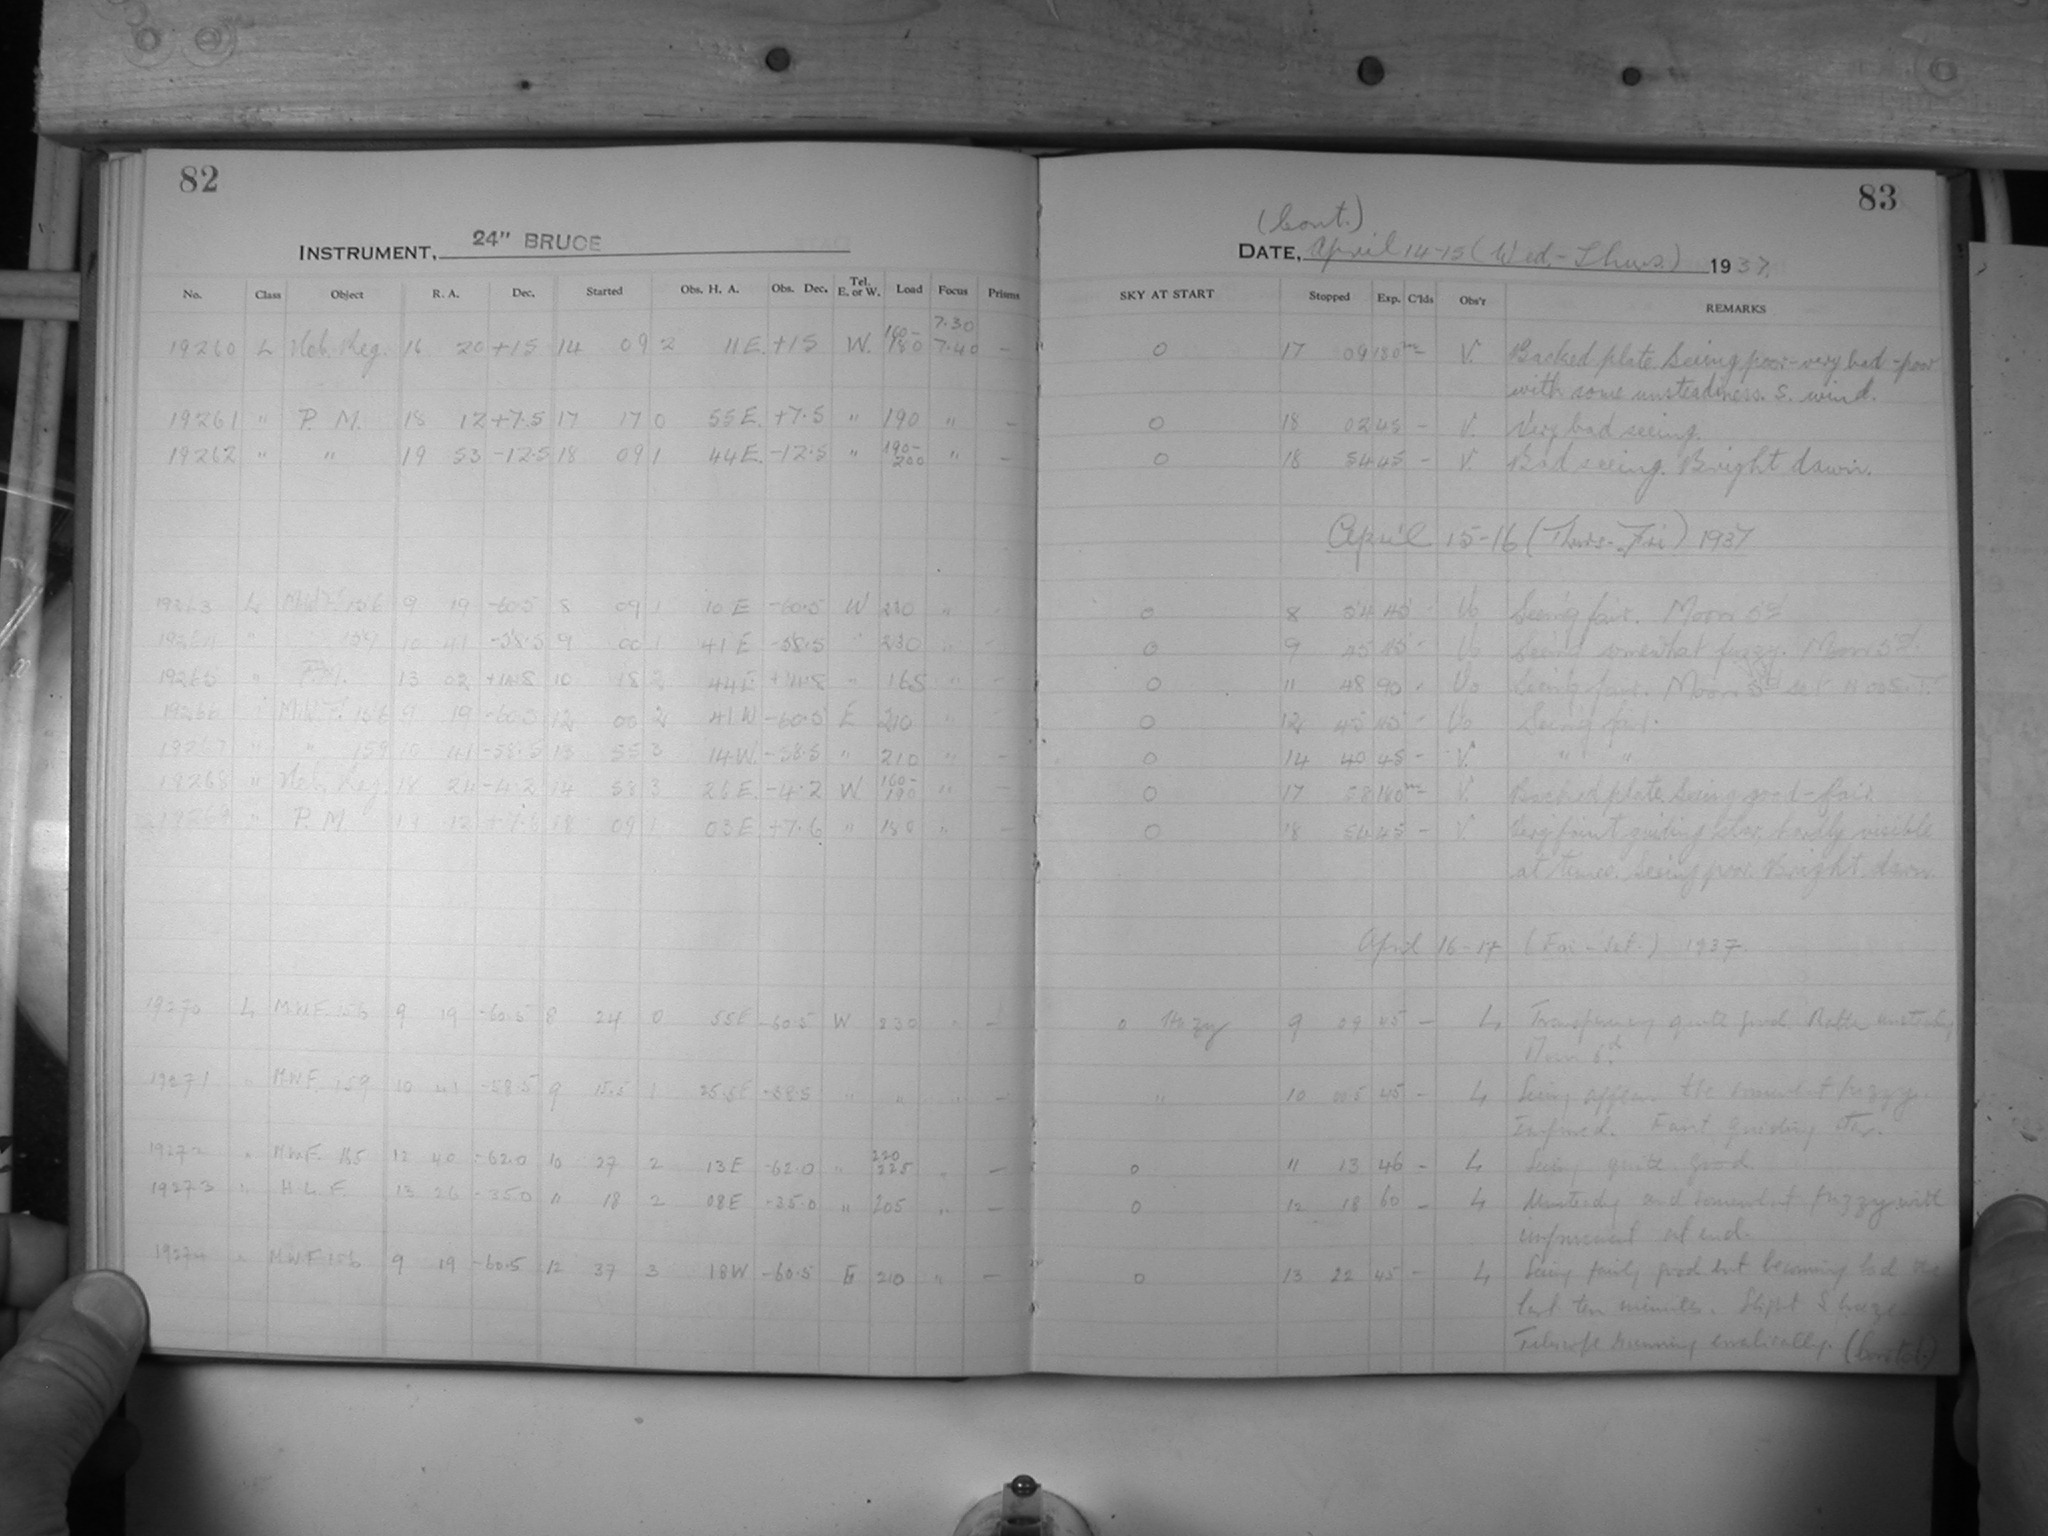 82
INSTRUMENT, 24" BRUCE
No. Class Object R. A. Dec. Started Obs. H. A. Obs. Dec. Tel. E. or W. Load Focus Prisms
19260 L Neb. Reg. 16 20 +15 14 09 2 11 E. +15 W. 160-180 7.30 7.40 –
19261 " P. M. 18 12 +7.5 17 17 0 55 E. +7.5 " 190 " –
19262 " " 19 53 -12.5 18 09 1 44 E. -12.5 " 190-200 " –
19263 L M.W.F. 156 9 19 -60.5 8 09 1 10 E -60.5 W 230 "
19264 " " 159 10 41 -58.5 9 00 1 41 E -58.5 " 230 " –
19265 " P.M. 13 02 10 18 2 44 E " 165 " –
19266 " M.W.F. 156 9 19 -60.5 12 00 2 41 W -60.5 E 210 "
19267 " " 159 10 41 -58.5 13 55 3 14 W. -58.5 " 210 " –
19268 " Neb. Reg. 18 24 -4.2 14 58 3 26 E. -4.2 W 160-190 " –
19269 " P. M. 19 12 18 09 1 03 E +7.6 " 180 " –
19270 L M.W.F. 156 9 19 -60.5 8 24 0 55 E -60.5 W 230 " –
19271 " M.W.F. 159 10 41 -58.5 9 15.5 1 25.5 E -58.5 " " " –
19272 " M.W.F. 185 12 40 -62.0 10 27 2 13 E -62.0 " 220 225 " –
19273 " H. L. F. 13 26 -35.0 11 18 2 08 E -35.0 " 205 " –
19274 " M.W.F. 156 9 19 -60.5 12 37 3 18 W -60.5 E 210 " –
83
(Cont.)
DATE, April 14-15 (Wed.-Thurs.) 1937.
SKY AT START Stopped Exp. C'lds Obs'r REMARKS
0 17 09 180 – V. Backed plate. Seeing poor - very bad - poor
with some unsteadiness. S. wind.
0 18 02 45 – V. Very bad seeing.
0 18 54 45 – V. Bad seeing. Bright dawn.
April 15-16 (Thurs.-Fri) 1937
0 8 54 45 Uo Seeing fair. Moon 5d
0 9 45 45 Uo Seeing somewhat fuzzy. Moon 5d.
0 11 48 90 Uo Seeing fair. Moon 5d set
0 12 45 45 Uo Seeing fair.
0 14 40 45 – V. " "
0 17 58 180 – V. Backed plate. Seeing good - fair.
0 18 54 45 – V. Very faint guiding star, hardly visible
at times. Seeing poor. Bright dawn.
April 16-17 (Fri-Sat.) 1937.
0 Hazy 9 09 45 – L. Transparency quite good. Rather unsteady
Moon 6d
" 10 00.5 45 – L Seeing somewhat fuzzy.
Improved. Faint guiding star.
0 11 13 46 – L Seeing quite good.
0 12 18 60 – L Unsteady and somewhat fuzzy with
improvement at end.
0 13 22 45 – L Seeing fairly good but becoming bad the
last ten minutes. Slight S. breeze
Telescope running erratically. (Contd.)